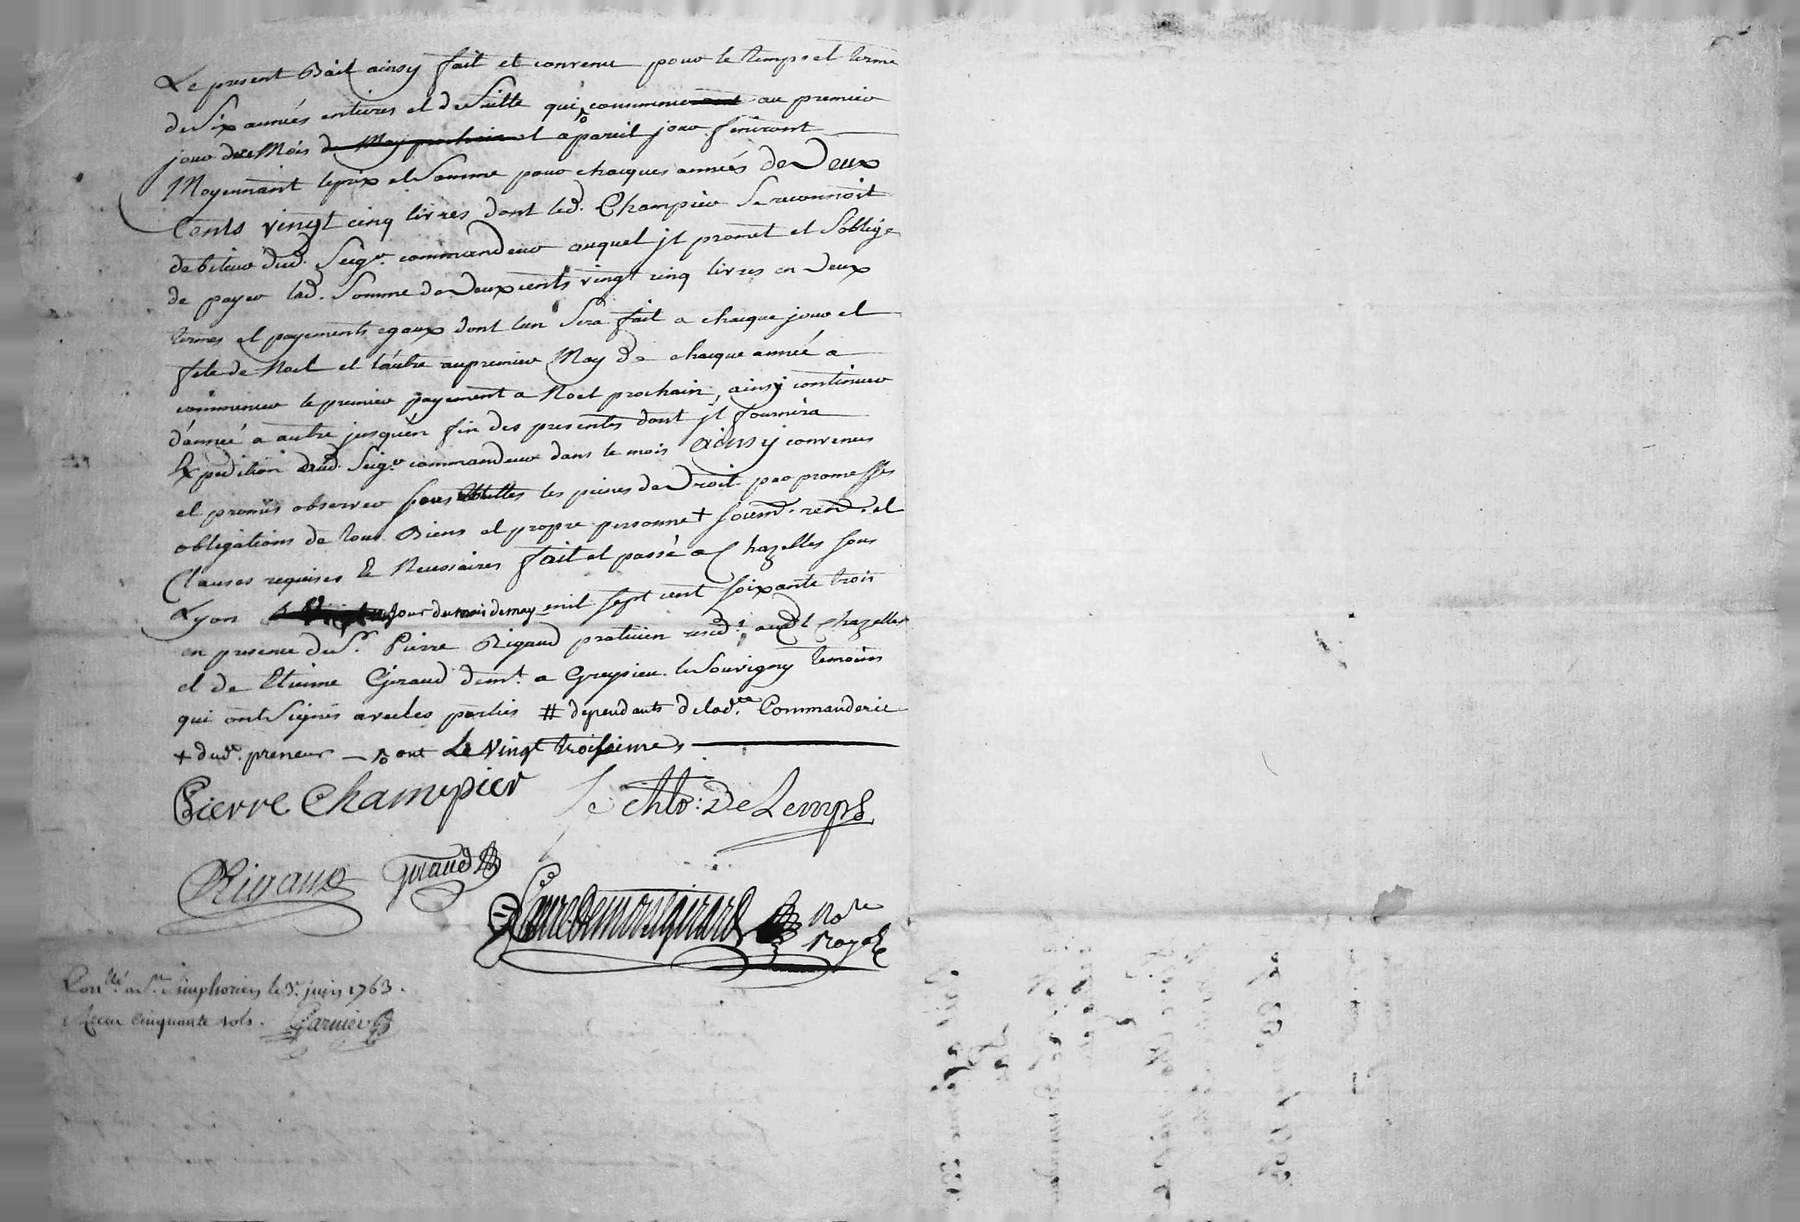 Le present Bail ainsy fait et convenu pour le temps et terme
de Six années entieres et de Suitte qui commencent au premier
jour du Mois de May prochain et a pareil jour finiront
Moyennant le prix et Somme pour chacques années de Deux
Cents vingt cinq livres dont led. Champier Se reconnoit
debiteur dud. Seigr. commandeur auquel jl promet et Soblige
de payer lad. Somme de Deux cents vingt cinq livres en deux
termes et payements egaux dont l'un Sera fait a chacque jour et
fete de Noel et l'autre au premier May de chacque année a
commencer le premier payement a Noel prochain, ainsy continuer
d'année a autre jusqu'en fin des presentes dont jl fournira
Expedition aud. Seigr. commandeur dans le mois ainsy convenus
et promis observer sous les peines de Droit par promesses
obligations de tous Biens et propre personne + soumd. renond. et
Clauses requises & Necessaires fait et passé a Chazelles sous
Lyon jour du mois de may mil sept cent soixante trois
en presence de Sr. Pierre Rigaud praticien resident aud. Chazelles
et de Etienne Giraud demt. a Greysieu le Souvigny temoins
qui ont Signés avec les parties # dependants de lad.te Commanderie
+ dud. preneur — ont Le vingt troisieme,
Pierre Champier Le Chlr: De Lemps
Rigaud Giraud
Nore. Royal
Conllé a St. Simphorien le 3e. juin 1763.
Recu Cinquante sols. Garnier